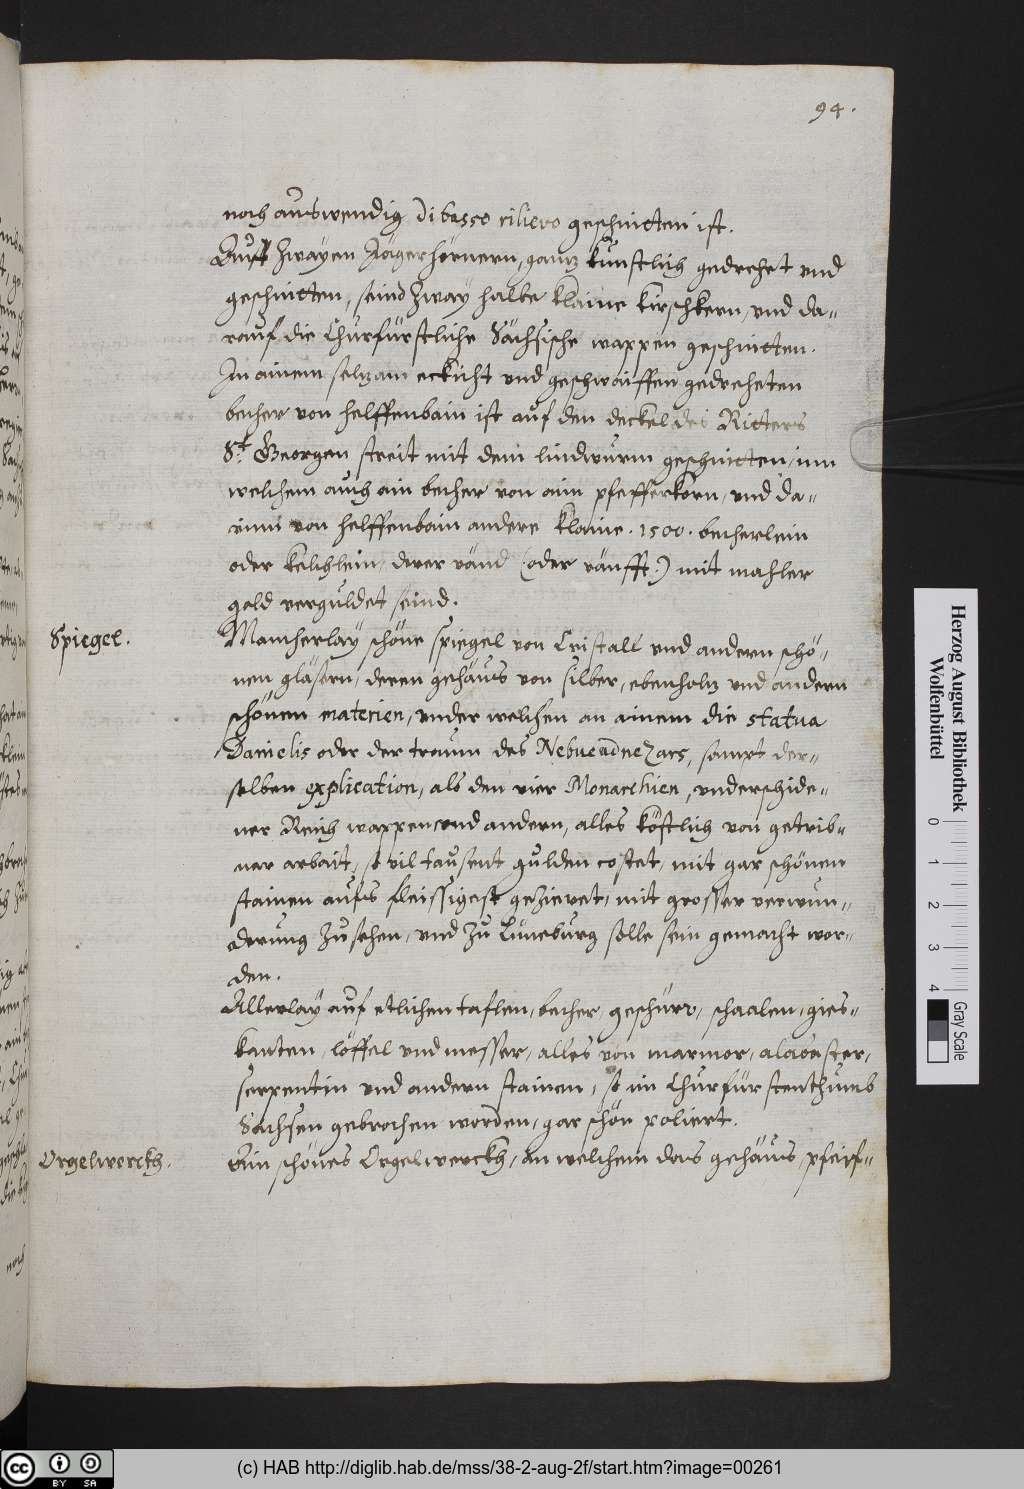 94.
noch auswendig di basso rilievo geschnitten ist.
Auff zwayen Jägerhörnern, gantz künstlich gedrehet und
geschnitten, seind zway halbe klaine kirschkern, und da=
rauf die Churfürstliche Sächsische wappen geschnitten.
In ainem seltzam eckicht und geschwaiffen gedreheten
becher von helffenbain ist auf den deckel des Ritters
St. Georgen streit mit dem lindwurm geschnitten, inn
welchem auch ain becher von aim pfefferkorn, und da=
rinn von helffenbain andere klaine .1500. becherlein
oder kelchlein, derer ränd (oder ränfft.) mit mahler
gold verguldet seind.
Spiegel.
Mancherlay schöne spiegel von Cristall und andern schö=
nen gläsern, deren gehäus von silber, ebenholtz und andern
schönen materien, under welchen an ainem die statua
Danielis oder der traum des Nebucadnezars, sampt der=
selben explication, als den vier Monarchien, underschide=
ner Reich wappen und andern, alles köstlich von getrib=
ner arbait, so vil tausent gulden costet, mit gar schönen
stainen aufs fleissigest gezieret, mit grosser verwun=
derung zu sehen, und zu Lüneburg solle sein gemacht wor=
den.
Allerlay auf etlichen taflen, becher, geschürr, schaalen, gies=
kanten, löffel und messer, alles von marmor, alabaster,
serpentin und andern stainen, so im Churfürstenthumb
Sachsen gebrochen worden, gar schön poliert.
Orgelwerckh.
Ein schönes Orgelwerckh, an welchem das gehäus, pfeif=
noch
Herzog August Bibliothek
Wolfenbüttel
0 1 2 3 4
Gray Scale
cc BY SA
(c) HAB http://diglib.hab.de/mss/38-2-aug-2f/start.htm?image=00261